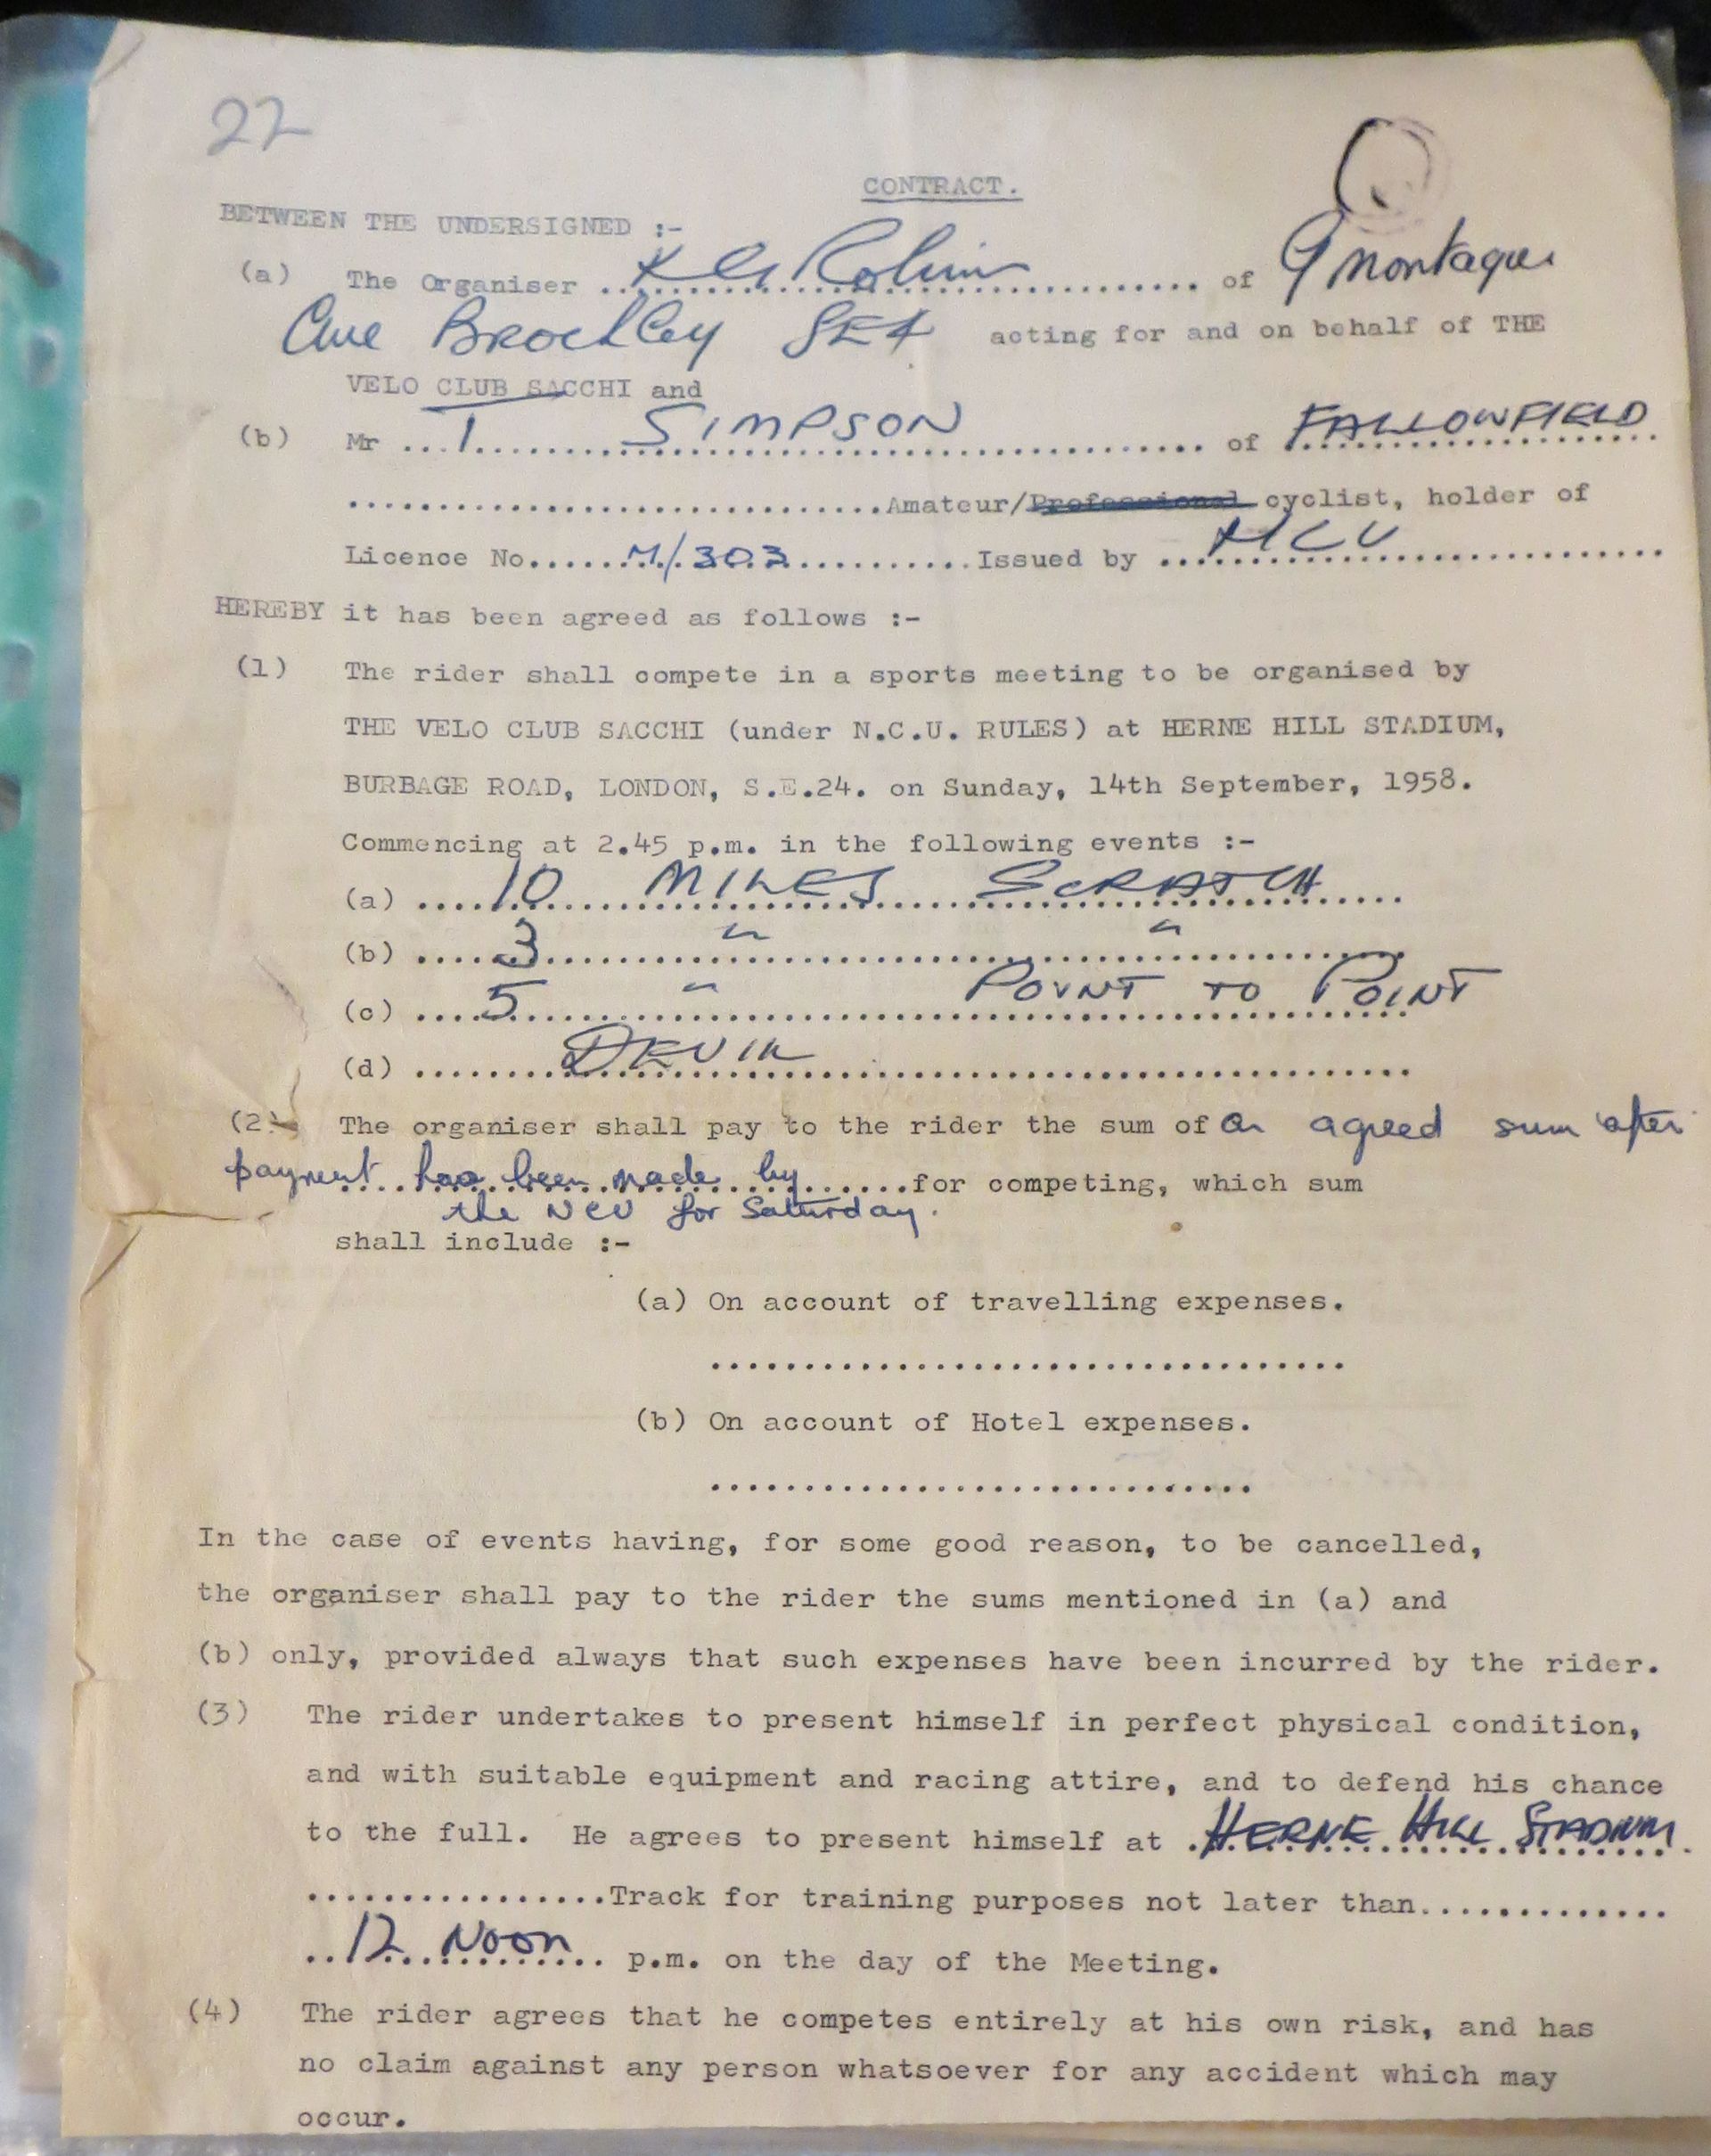 22
CONTRACT.
BETWEEN THE UNDERSIGNED :-
(a) The Organiser .................................... of 9 Montague
Ave Brockley SE4 acting for and on behalf of THE
VELO CLUB SACCHI and
(b) Mr ...T......SIMPSON.................. of FALLOWFIELD
................................Amateur/Professional cyclist, holder of
Licence No......M/303............Issued by ...........................
HEREBY it has been agreed as follows :-
(1) The rider shall compete in a sports meeting to be organised by
THE VELO CLUB SACCHI (under N.C.U. RULES) at HERNE HILL STADIUM,
BURBAGE ROAD, LONDON, S.E.24. on Sunday, 14th September, 1958.
Commencing at 2.45 p.m. in the following events :-
(a) ....10 MILES SCRATCH....
(b) ....3 " "
(c) ....5 " POINT TO POINT
(d) ........DEVIL....................
(2) The organiser shall pay to the rider the sum of an agreed sum after
payment has been made by.......for competing, which sum
the NCU for Saturday.
shall include :-
(a) On account of travelling expenses.
..................................
(b) On account of Hotel expenses.
.............................
In the case of events having, for some good reason, to be cancelled,
the organiser shall pay to the rider the sums mentioned in (a) and
(b) only, provided always that such expenses have been incurred by the rider.
(3) The rider undertakes to present himself in perfect physical condition,
and with suitable equipment and racing attire, and to defend his chance
to the full. He agrees to present himself at .HERNE HILL STADIUM.
................Track for training purposes not later than..............
..12 Noon.. p.m. on the day of the Meeting.
(4) The rider agrees that he competes entirely at his own risk, and has
no claim against any person whatsoever for any accident which may
occur.